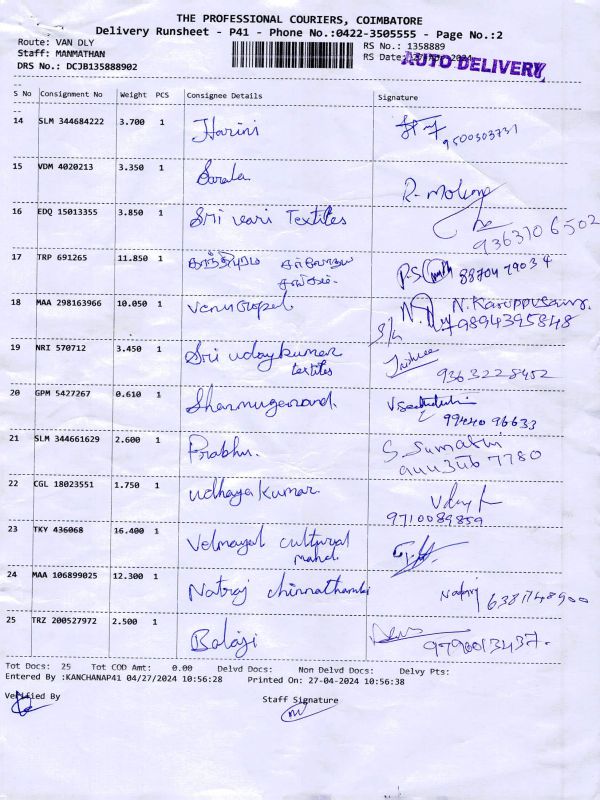 THE PROFESSIONAL COURIERS, COIMBATORE
Delivery Runsheet - P41 - Phone No.:0422-3505555 - Page No.:2
Route: VAN DLY
RS No.: 1358889
Staff: MANMATHAN
RS Date:
AUTO DELIVERY
DRS No.: DCJB135888902
S No Consignment No Weight PCS Consignee Details Signature
14 SLM 344684222 3.700 1 Harini
9500303731
15 VDM 4020213 3.350 1 Sarala
16 EDQ 15013355 3.850 1 Sri vari Textiles
9363106502
17 TRP 691265 11.850 1 P.S 8870479034
18 MAA 298163966 10.050 1 Venugopal
9894395848
19 NRI 570712 3.450 1 Sri udaykumar
textiles 9363228452
20 GPM 5427267 0.610 1
9944096633
21 SLM 344661629 2.600 1 Prabhu. S. Sumathi
7780
22 CGL 18023551 1.750 1 udhaya kumar.
9710089859
23 TKY 436068 16.400 1 Velmayal cultural
mahal.
24 MAA 106899025 12.300 1 Natraj chinnathambi Natraj 6381748900
25 TRZ 200527972 2.500 1 Balaji
9790013437.
Tot Docs: 25 Tot COD Amt: 0.00 Delvd Docs: Non Delvd Docs: Delvy Pts:
Entered By :KANCHANAP41 04/27/2024 10:56:28 Printed On: 27-04-2024 10:56:38
Verified By Staff Signature